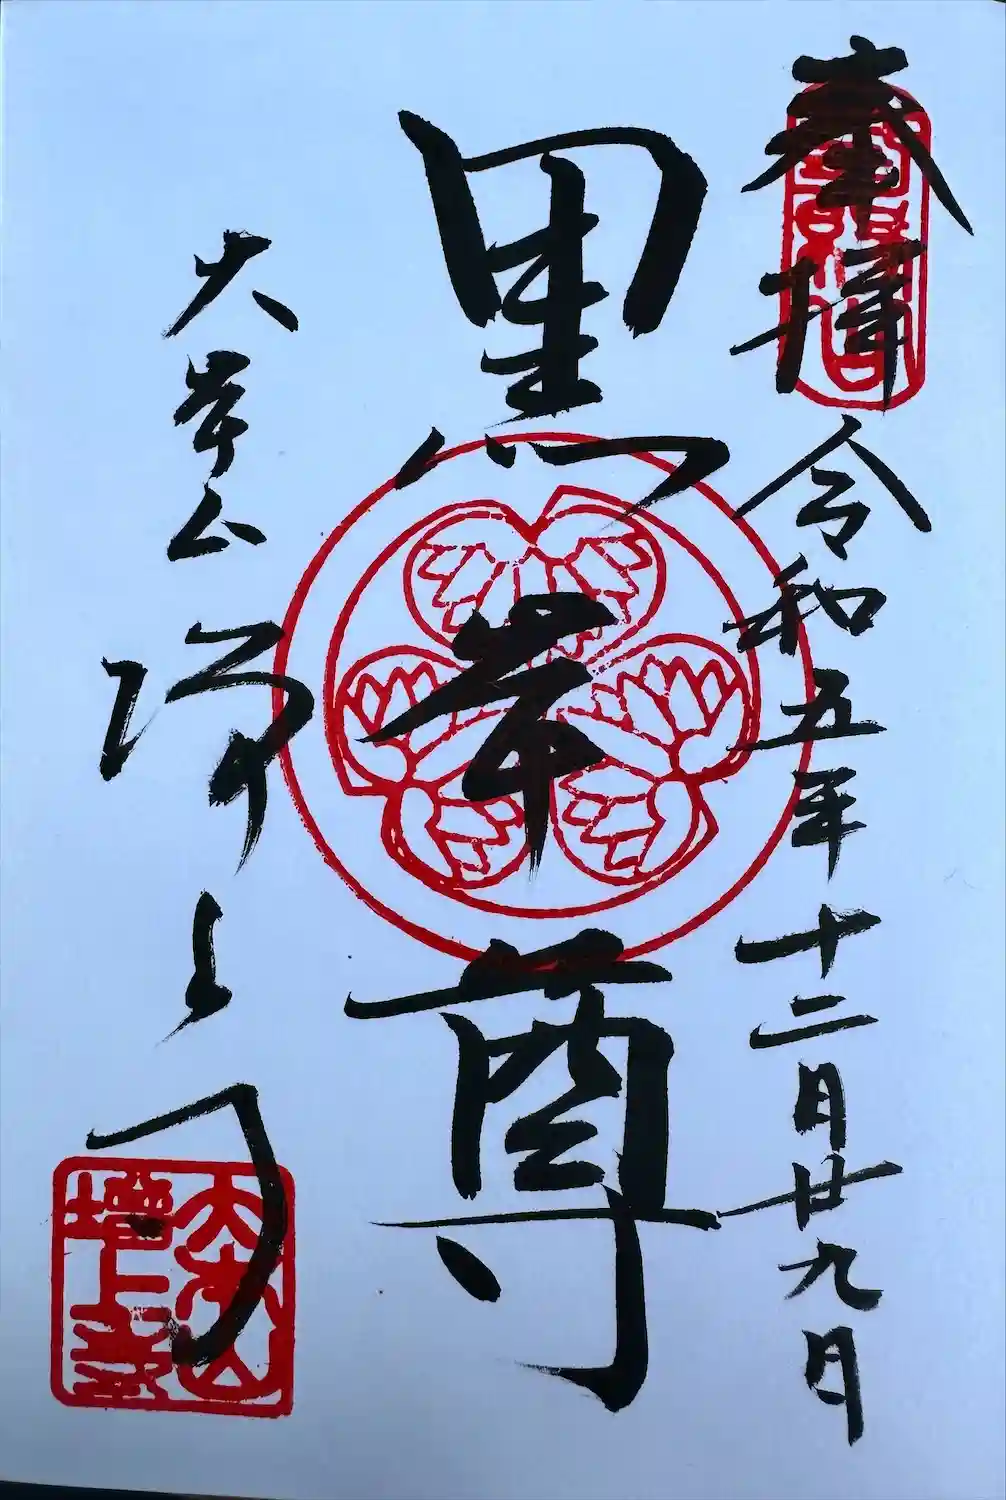 奉拝 令和五年十二月廿九日
黒本尊
大本山 増上寺
大本山
増上寺